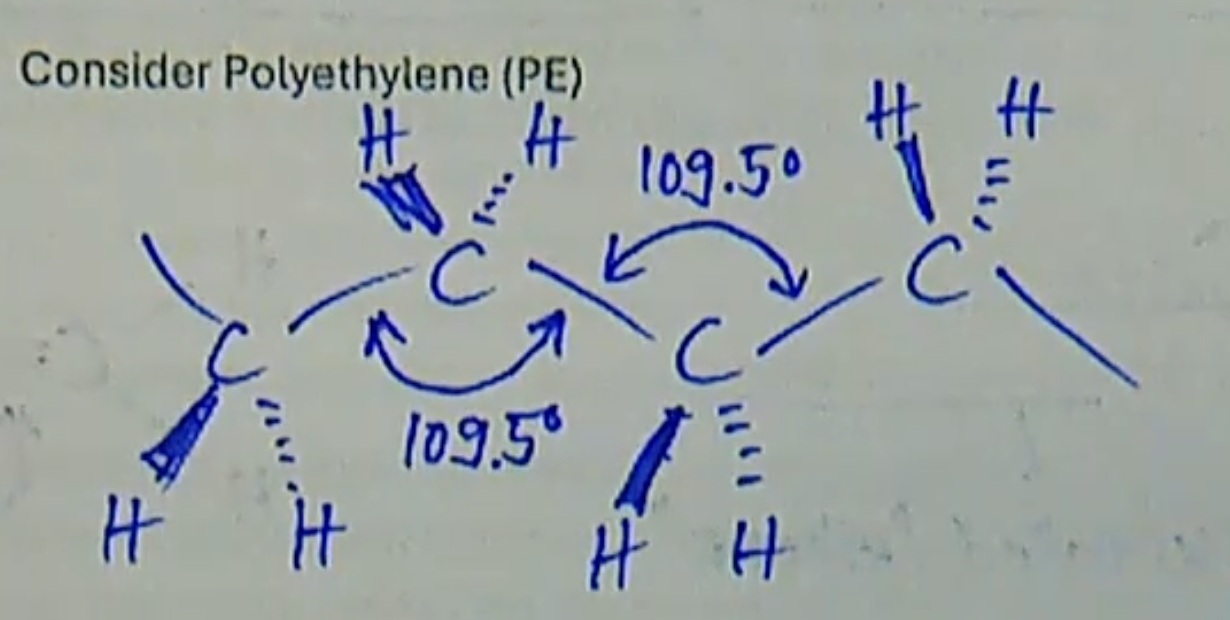 Consider Polyethylene (PE)
H H H H
109.5°
C C
C C
109.5°
H H H H